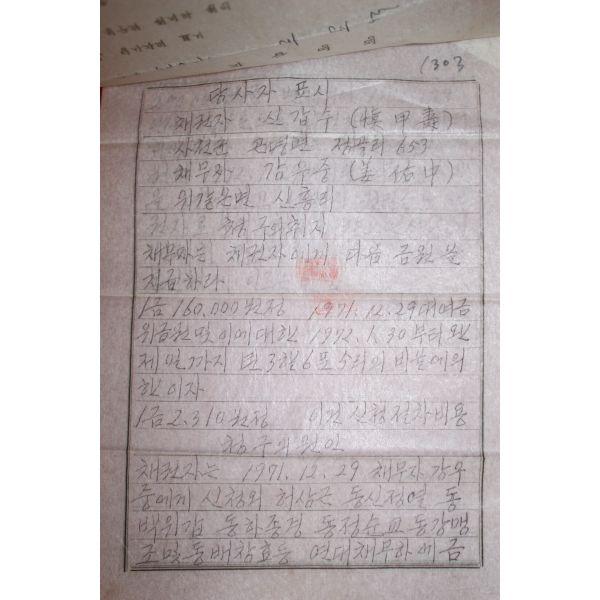 1303
당사자 표시
채권자 신갑수 (愼甲壽)
사천군 곤명면 정곡리 653
채무자 강우중 (姜佑中)
위같은면 신흥리
청구의취지
채무자는 채권자에게 다음 금원을
지급하라
1금 160,000원정 1971.12.29 대여금
위금원및이에대한 1972.1.30부터완
제일까지 년3할6푼5리의 비율에의
한 이자
1금 2,310원정 이건신청절차비용
청구의원인
채권자는 1971.12.29 채무자 강우
중에게 신청외 허상은 동신정열 동
박위갑 동하종경 동정순교 동강맹
조및동배창효등 연대채무하에금